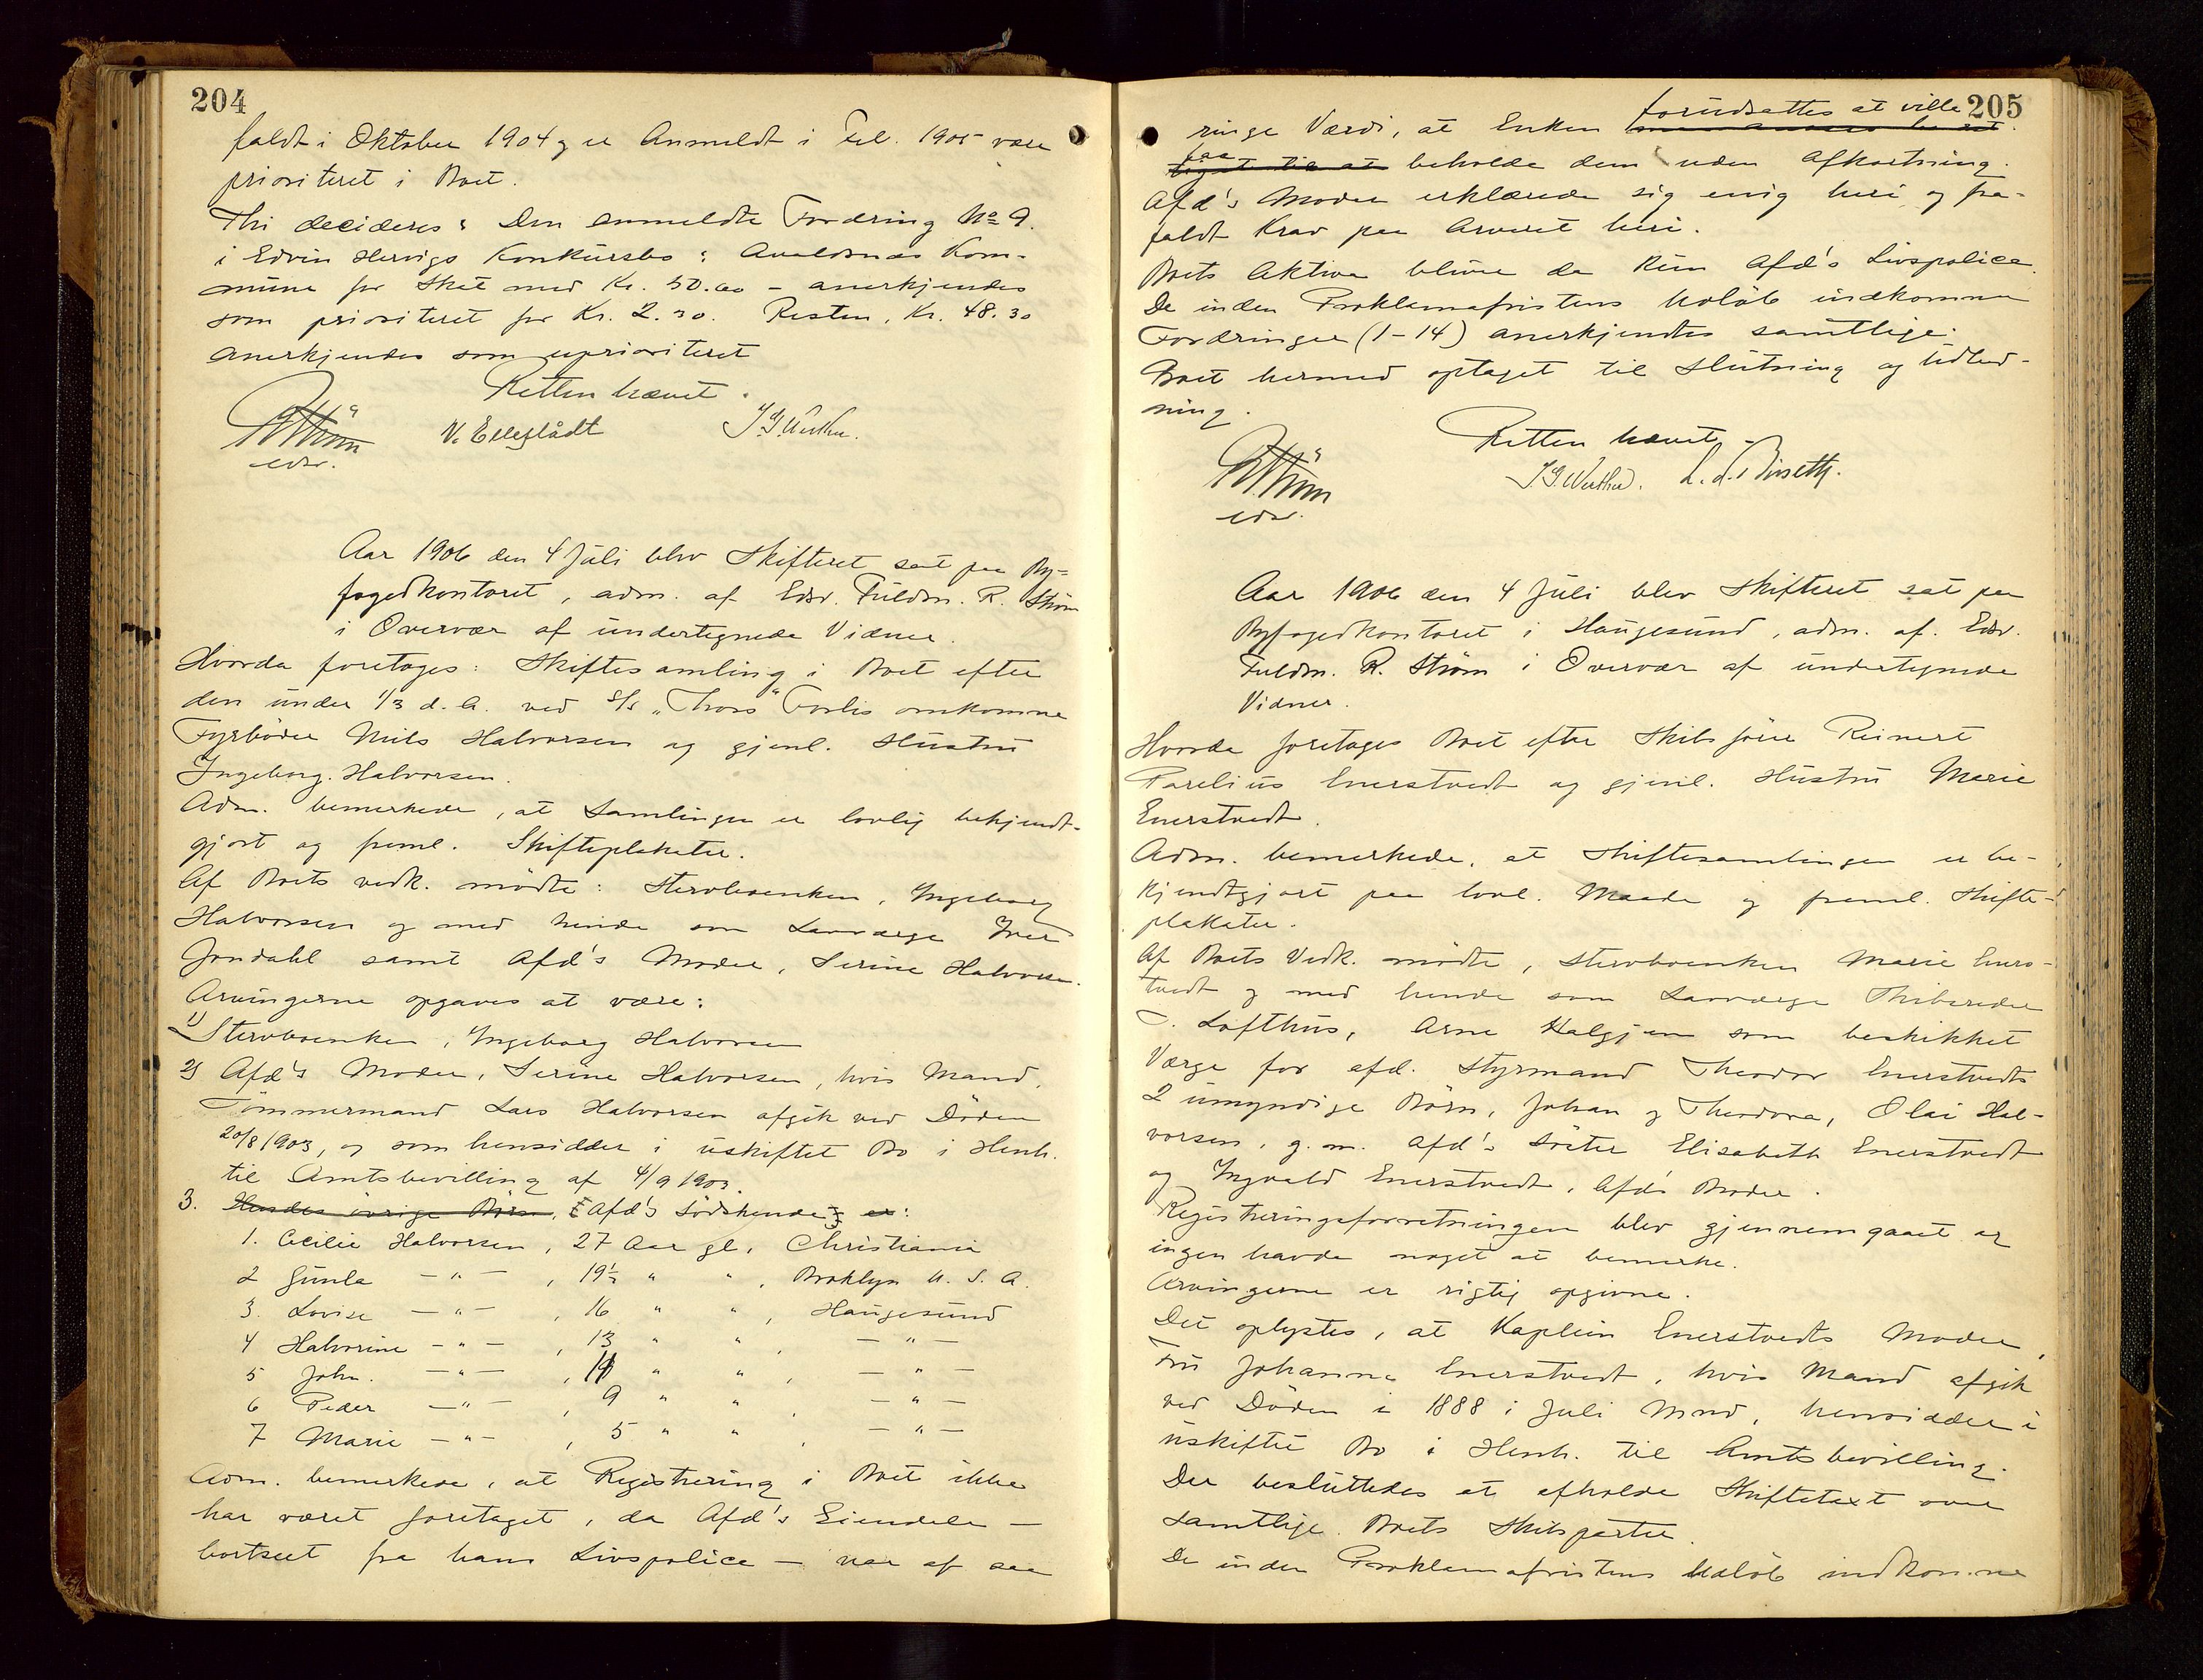 204
faldt i Oktober 1904 og er Anmeldt i Feb. 1905 være
prioriteret i Boet.
Thi decideres: Den anmeldte Fordring No 9.
i Edvin Hervigs Konkursbo: Avaldsnes Kom-
mune for Skat med Kr. 50.60 – anerkjendes
som prioriteret for Kr. 2.30. Resten, Kr. 48.30
anerkjendes som uprioriteret
Retten hævet.
R Strøm V. Ellestadt J. G. Werther.
edsv.
Aar 1906 den 4 Juli blev Skifteret sat paa By-
fogedkontoret, adm. af Edsv. Fuldm. R. Strøm
i Overvær af undertegnede Vidner.
Hvorda foretages: Skiftesamling i Boet efter
den under 1/3 d. A. ved S/S "Thors" Forlis omkomne
Fyrbøder Nils Halvorsen og gjenl. Hustru
Ingeborg Halvorsen.
Adm. bemerkede, at Samlingen er lovlig bekjendt-
gjort og freml. Skifteplakater.
Af Boets vedk. mødte: Stervboenken, Ingeborg
Halvorsen og med hende som Laugværge Iver
Jondahl samt Afd's Moder, Serine Halvorsen.
Arvingerne opgaves at være:
1) Stervboenken, Ingeborg Halvorsen
2) Afd's Moder, Serine Halvorsen, hvis Mand,
Tømmermand Lars Halvorsen afgik ved Døden
20/8 1903, og som hensidder i uskiftet Bo i Henh.
til Amtsbevilling af 4/9 1903.
3. Hendes øvrige Børn, [Afd's Sødskende] er:
1. Cecilie Halvorsen, 27 Aar gl. Christiania
2 Gunla —"—, 19½ " ", Broklyn U. S. A.
3. Lovise —"—, 16 " ", Haugesund
4 Halvorine —"—, 13 " ", —"—
5 John. —"—, 11 " ", —"—
6 Peder —"—, 9 " ", —"—
7 Marie —"—, 5 " ", —"—
Adm. bemerkede, at Registrering i Boet ikke
har været foretaget, da Afd's Eiendele –
bortseet fra hans Livspolice – var af saa
205
forudsattes at ville
ringe Værdi, at Enken
faa
beholde dem uden Afkortning.
Afd's Moder erklærede sig enig heri og fra-
faldt Krav paa Arveret heri.
Boets Aktiva bliver da kun Afd's Livspolice.
De inden Proklamafristens Udløb indkomne
Fordringer (1-14) anerkjendtes samtlige.
Boet hermed optaget til Slutning og Udlod-
ning.
Retten hævet.
R Strøm J. G. Werther.
edsv.
Aar 1906 den 4 Juli blev Skifteret sat paa
Byfogedkontoret i Haugesund, adm. af. Edsv.
Fuldm. R. Strøm i Overvær af undertegnede
Vidner.
Hvorda foretages Boet efter Skibsfører Reinert
Parelius Enerstvedt og gjenl. Hustru Marie
Enerstvedt.
Adm. bemerkede, at Skiftesamlingen er be-
kjendtgjort paa lovl. Maade og freml. Skifte-
plakater.
Af Boets Vedk. mødte, Stervboenken Marie Eners-
tvedt og med hende som Laugværge Skibsreder
T. Lofthus, Arne Halgjem som beskikket
Værge for afd. Styrmand Theodor Enerstvedts
2 umyndige Børn, Johan og Theodora, Olai Hal-
vorsen, g. m. Afd's Søster Elisabeth Enerstvedt
og Ingvald Enerstvedt, Afd's Broder.
Registreringsforretningen blev gjennemgaaet og
ingen havde noget at bemerke.
Arvingerne er rigtig opgivne.
Det oplystes, at Kaptein Enerstvedts Moder,
Fru Johanne Enerstvedt, hvis Mand afgik
ved Døden i 1888 i Juli Mnd, hensidder i
uskiftet Bo i Henh. til Amtsbevilling.
Der besluttedes at afholde Skiftetaxt over
samtlige Boets Skibsparter.
De inden Proklamafristens Udløb indkomne